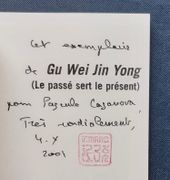 Cet exemplaire
de Gu Wei Jin Yong
(Le passé sert le présent)
pour Pascale Casanova,
Très cordialement,
4. X
2001